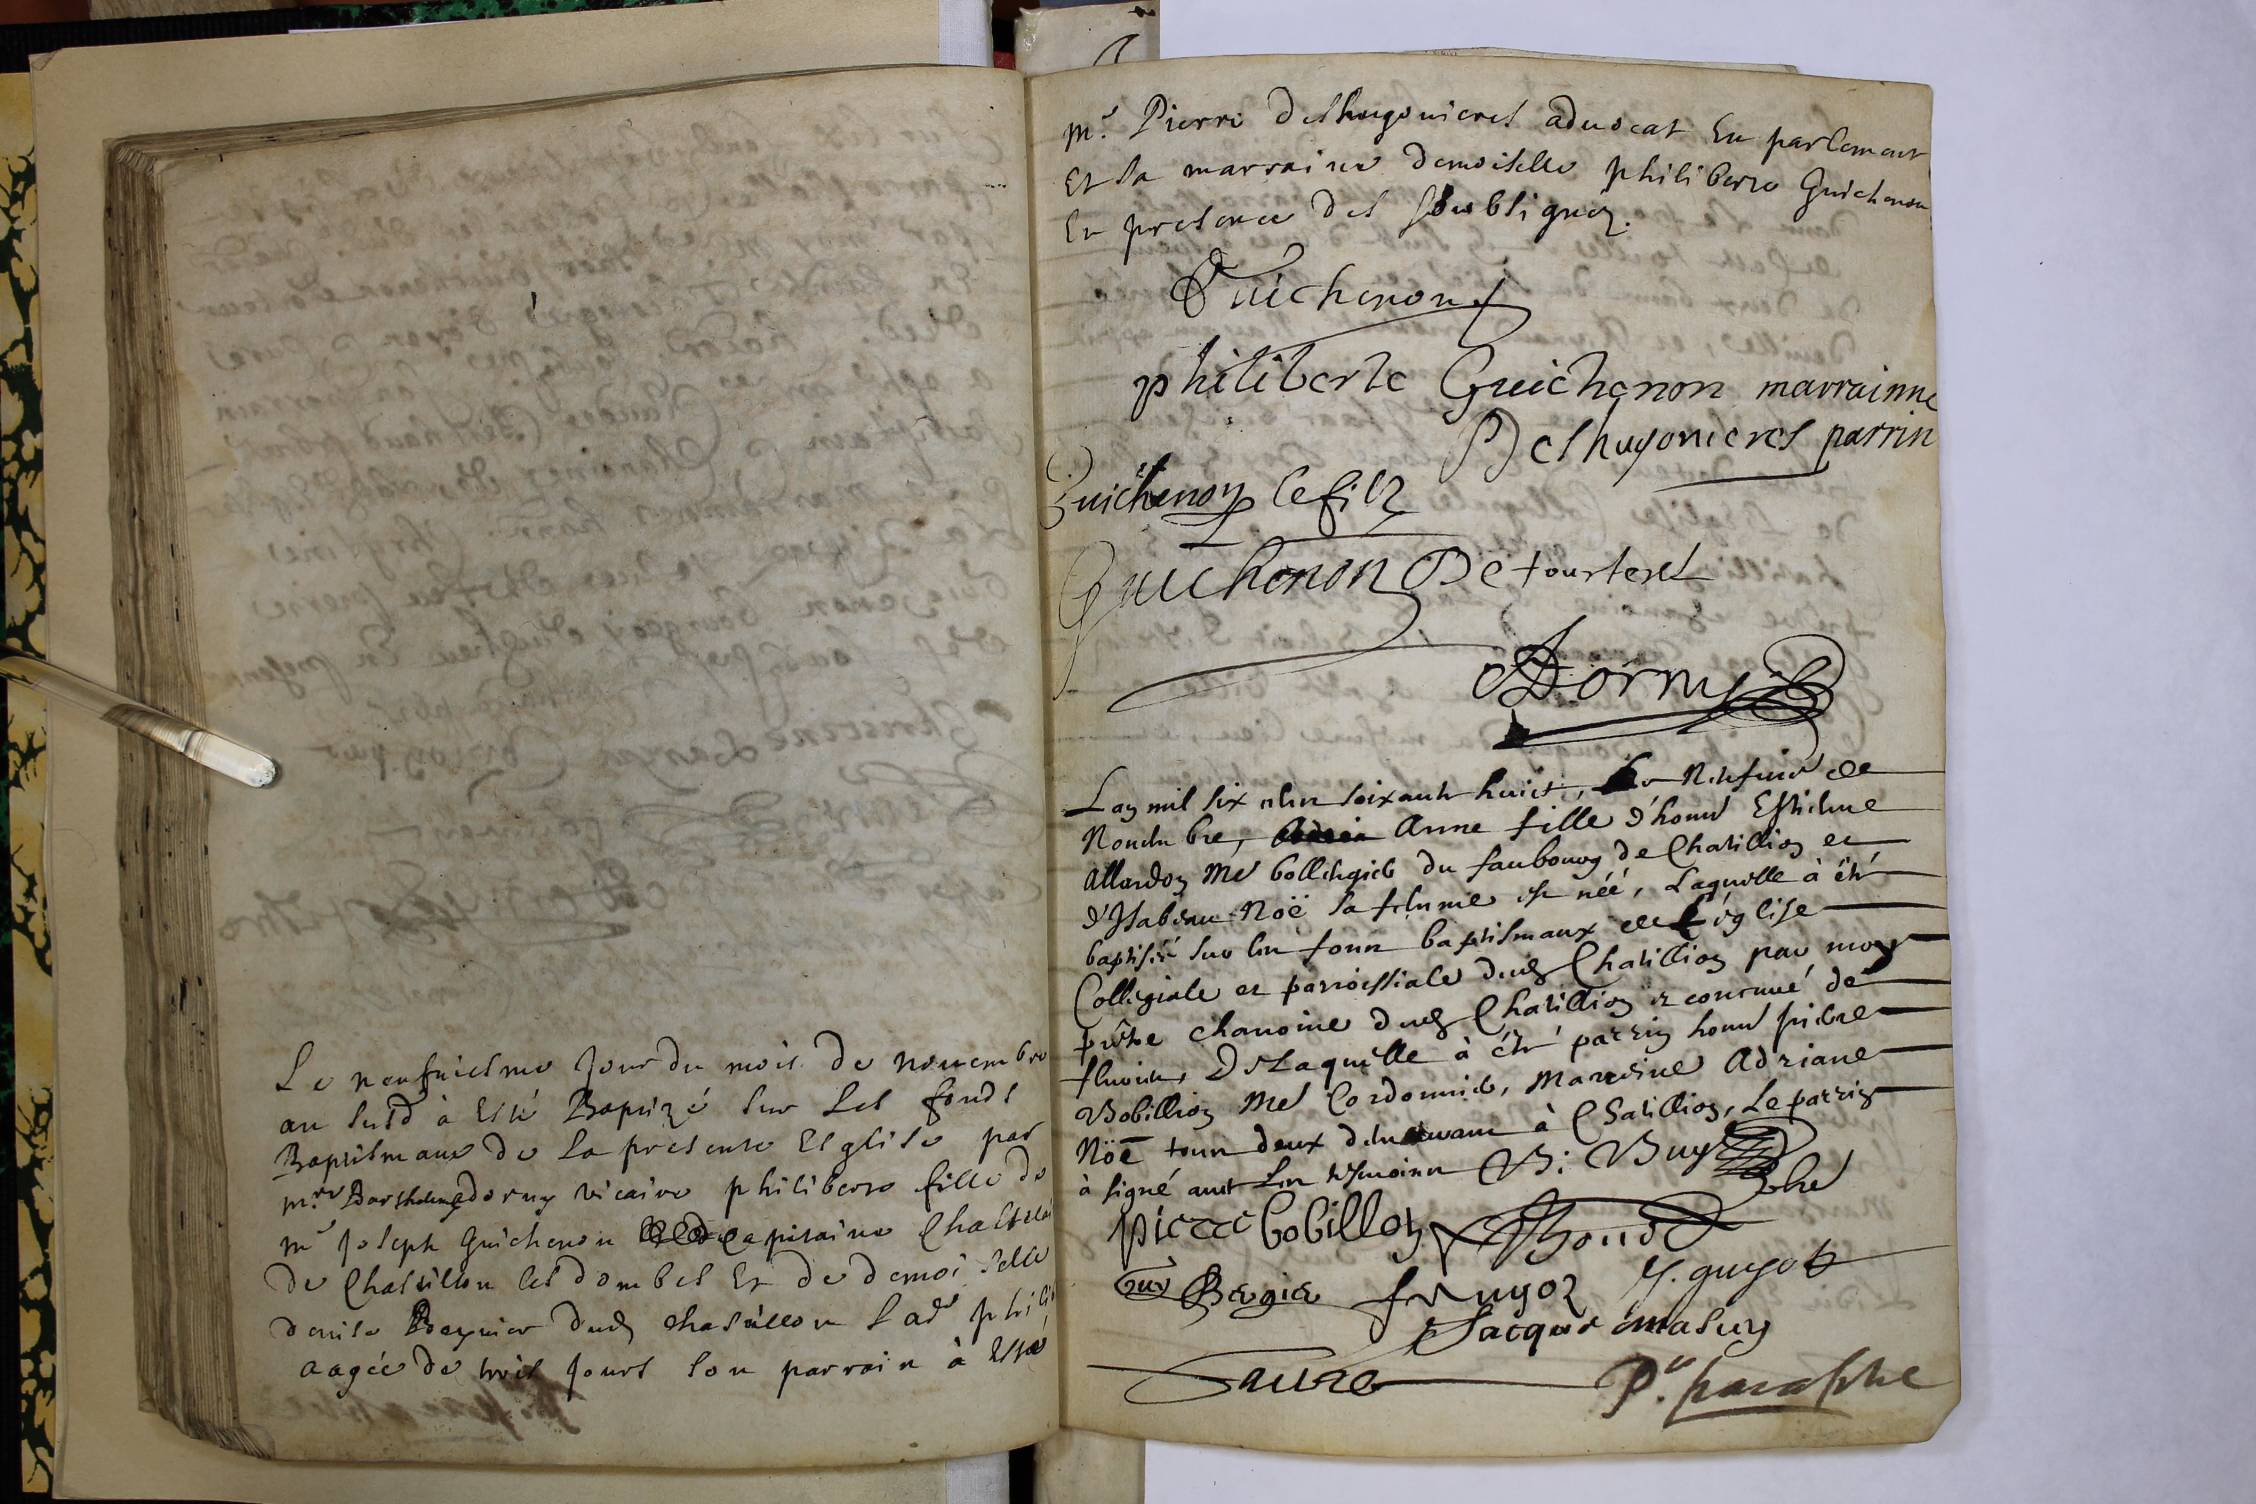 Le neufuiesme jour du mois de nouembre
an susd à esté Baptizé sur les fonds
Baptismaux de la presente Esglise par
m.re Bartholemy dorny vicaire philiberte fille de
m.e Joseph Guichenon capitaine Chastelai
de Chastillon les dombes Et de demoiselle
denise Beynier dud chastillon lad philib
aagée de trois jours son parrain à esté
m.e Pierre deshugonieres aduocat En parlement
Et sa marraine demoiselle philiberte Guichenon
En presence des soubsignez.
Guichenon
philiberte Guichenon marrainne
Deshugonieres parrin
Guichenon le filz
Guichenon De tourteret
Dorny
Lan mil six cens soixante huict, le neufuie de
Nouembre, Anne fille d'honn Esticnne
Allardon me du faubourg de Chatillion et
d'Isabeau Noë sa femme est néé, Laquelle à été
baptiséé sur les fonts baptismaux de L'église
Collegiale et parroissiale dud Chatillion par moy
prêtre chanoine dud Chatillion et de
De Laquelle à été parrin honn pierre
Bobillion me Cordonnier, Marreine Adriane
Nöe tous deux demeurans à Chatillion, Le parrin
à signé auec Les tesmoins B: Buy
pierre bobillon
Guy Bergier J. guyot
Jacque masuy
Faure P.r paraphe